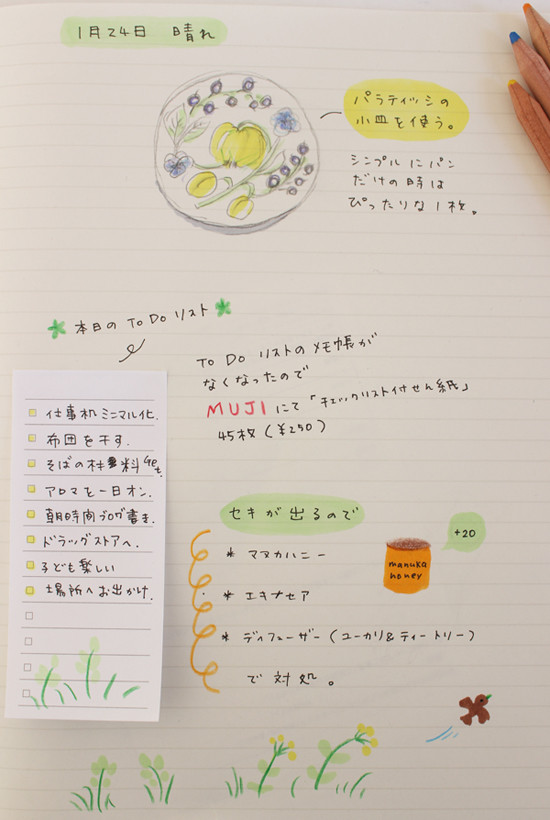 1月24日 晴れ
パラティッシの
小皿を使う。
シンプルにパン
だけの時は
ぴったりな1枚。
本日のToDoリスト
To Do リストのメモ帳が
なくなったので
MUJIにて「チェックリスト付せん紙」
45枚(¥250)
仕事机ミニマル化.
布団を干す.
そばの材料Get.
アロマを一日オン.
朝時間ブログ書き.
ドラッグストアへ.
子ども楽しい
場所へお出かけ.
セキが出るので
* マヌカハニー
+20
manuka
honey
* エキナセア
* ディフューザー(ユーカリ&ティートリー)
で対処。